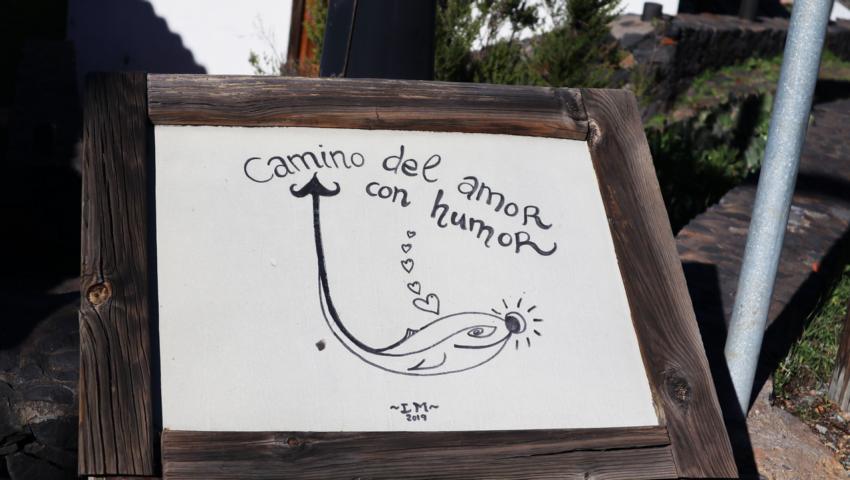 Camino del amoR
con humoR
~I M~
2019